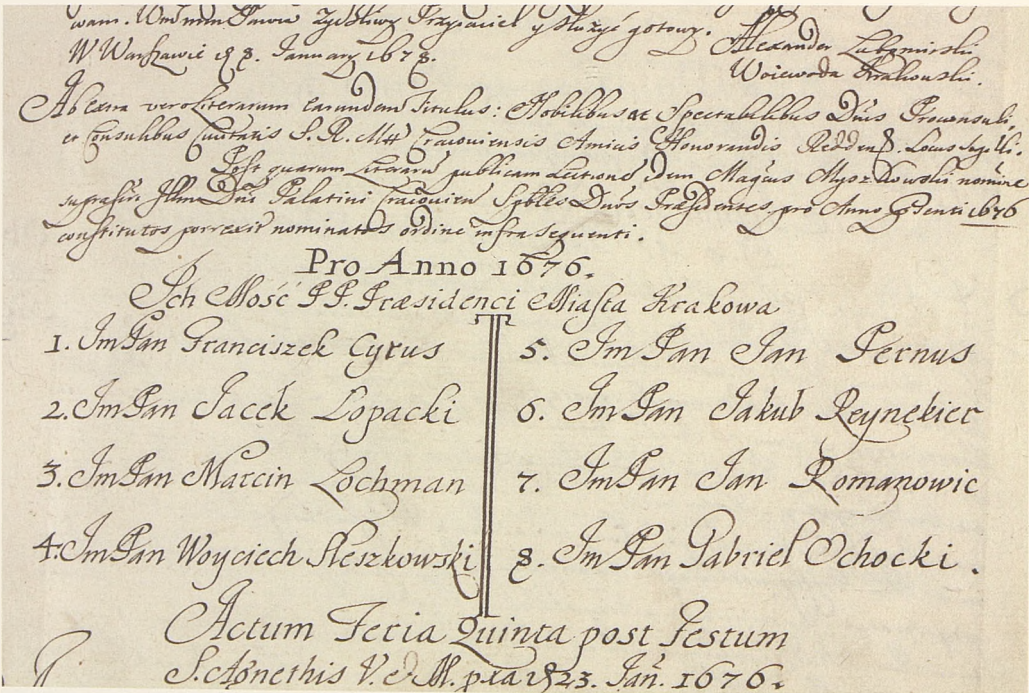 wam. Wm mm Panow życzliwy Przyiaciel y służyć gotowy.
Alexander Lubomirski
W Warszawie 8. January 1676.
Woiewoda Krakowski.
Ab extra vero Literarum earundem Titulus: Nobilibus ac Spectabilibus Dnis Proconsuli
et Consulibus Civitatis S. R. Mtt Cracoviensis Amicis Honorandis Redden. Locus Sigilli.
Post quarum Literaru publicam Lectione idem Magcus Myszkowski nomine
suprafati Illmi Dni Palatini Cracovien Spbles Dnos Præsidentes pro Anno Psenti 1676
constitutos porrexit nominatos ordine infrasequenti.
Pro Anno 1676.
Ich Mość PP. Præsidenci Miasta Krakowa
1. Im Pan Franciszek Cyrus
2. Im Pan Jacek Lopacki
3. Im Pan Marcin Lochman
4. Im Pan Woyciech Sleszkowski
5. Im Pan Jan Pernus
6. Im Pan Jakub Reynekier
7. Im Pan Jan Romanowic
8. Im Pan Gabriel Ochocki.
Actum Feria Quinta post Festum
S. Agnethis V. et M. 23. Jan. 1676.